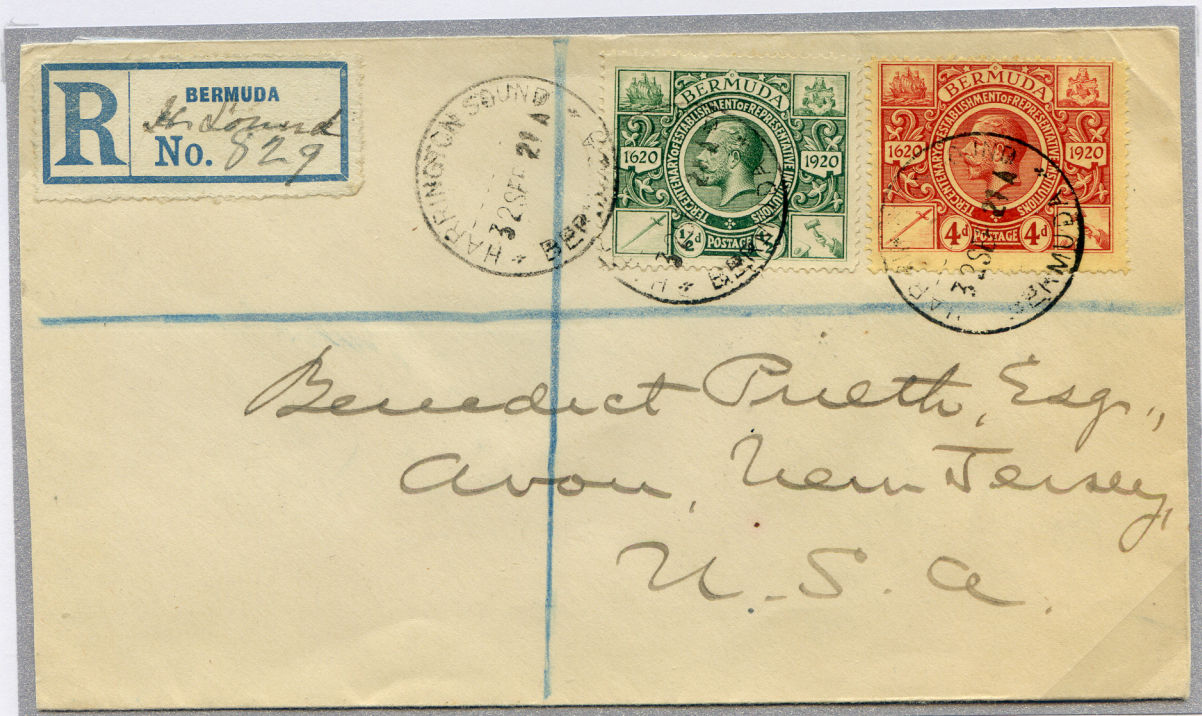 R
BERMUDA
H. Sound
No. 829
HARRINGTON SOUND
BERMUDA
3 2 SEP 21 A
BERMUDA
TERCENTENARY OF ESTABLISHMENT OF REPRESENTATIVE INSTITUTIONS
1620 1920
½d POSTAGE
BERMUDA
3
BERMUDA
TERCENTENARY OF ESTABLISHMENT OF REPRESENTATIVE INSTITUTIONS
1620 1920
4d POSTAGE 4d
3 2 SEP 21 A
BERMUDA
Benedict Prieth, Esq.,
Avon, New Jersey,
U.S.A.